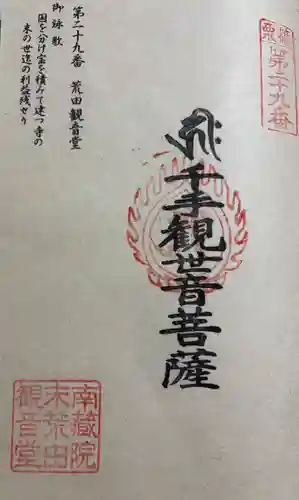 第二十九番 荒田観音堂
御詠歌
国を分け宝を積みて建つ寺の
末の世迄の利益残せり
第二十九番
千手観世音菩薩
南蔵院
末荒田
観音堂